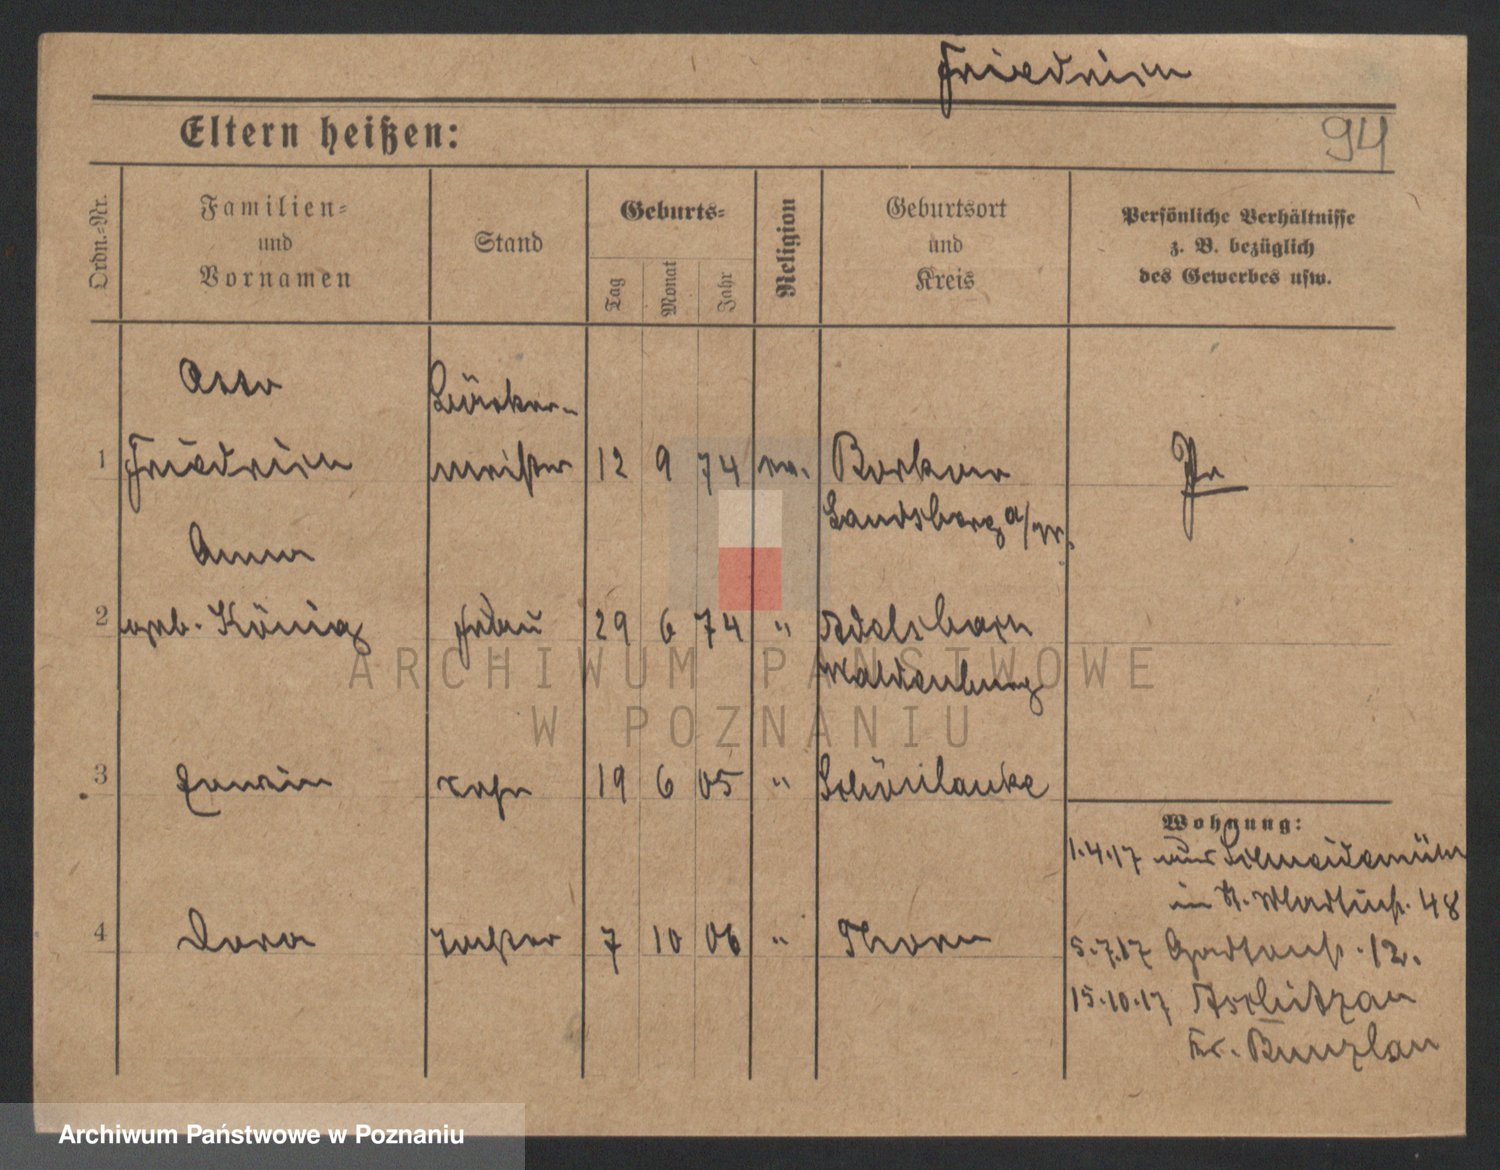 Friedrich
Eltern heißen:
94
Ordn.-Nr.
Familien-
und
Vornamen
Stand
Geburts-
Tag
Monat
Jahr
Religion
Geburtsort
und
Kreis
Persönliche Verhältnisse
z. B. bezüglich
des Gewerbes usw.
Otto
Bäcker-
1 Friedrich meister 12 9 74 ev. Borkow
Landsberg a/W.
Pr
Anna
2 geb. König Frau 29 6 74 "
Waldenburg
3 Erwin Sohn 19 6 05 " Schönlanke
4 Dora Tochter 7 10 06 " Thorn
Wohnung:
1.4.17 aus Schneidemühl
in 48
5.7.17 Gartenst. 12.
15.10.17
Kr. Bunzlau
ARCHIWUM PAŃSTWOWE
W POZNANIU
Archiwum Państwowe w Poznaniu